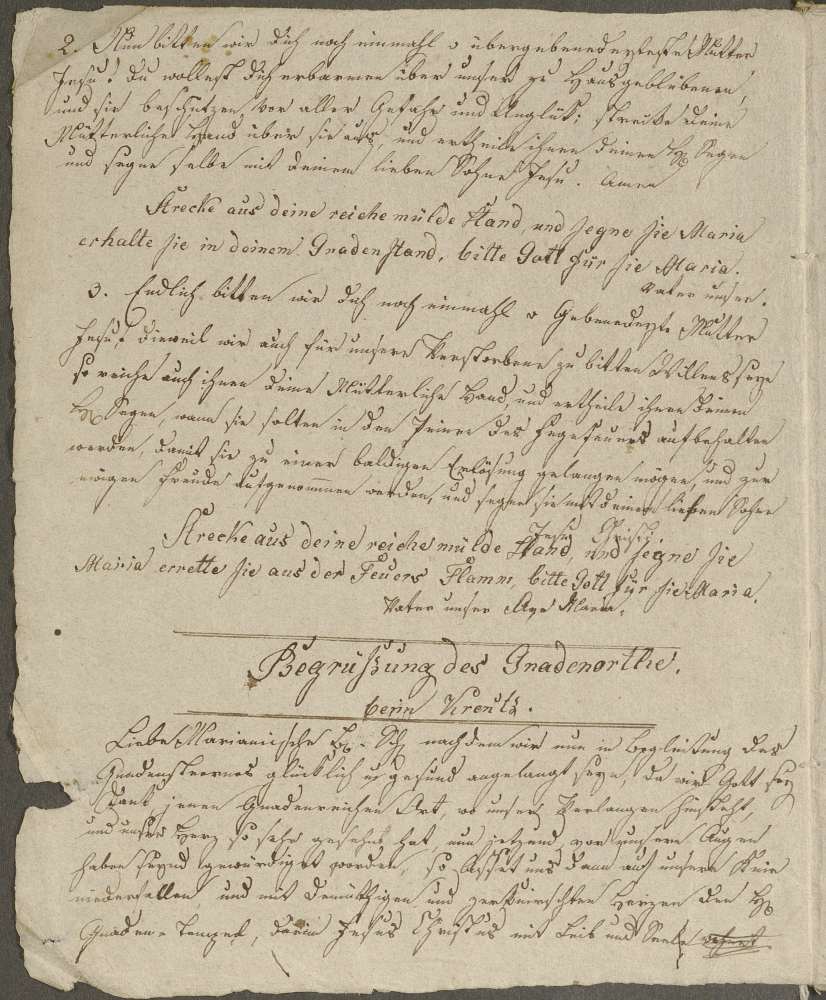 2. Nun bitten wir dich noch einmahl o übergebenedeyteste Mutter
Jesu! du wollest dich erbarmen über unser zu Hausgeblibenen,
und sie beschützen vor aller Gefahr und Unglük; strecke deine
Mütterliche Hand über sie aus, und ertheile ihnen deinen H. Segen
und segne selbe mit deinem lieben Sohne Jesu. Amen
Strecke aus deine reiche mülde Hand, und segne sie Maria
erhalte sie in deinem Gnadenstand, bitte Gott für sie Maria.
Vater unser.
3. Endlich bitten wir dich noch einmahl o Gebenedeyte Mutter
Jesu! dieweil wir auch für unsere Verstorbene zu bitten Willens seye
so reiche auch ihnen deine Mütterliche Hand, und ertheile ihnen deinen
H. Segen, wann sie solten in den Peinen des Fegefeuers aufbehalten
werden, damit sie zu einer baldigen Erlösung gelangen mögen, und zur
ewigen Freude aufgenommen werden, und segne sie mit deinem lieben Sohne
Jesu Christi.
Strecke aus deine reiche mülde Hand und segne sie
Maria errette sie aus der Feuers Flamm, bitte Gott für sie Maria.
Vater unser Ave Maria.
Begrüßung des Gnadenorthe.
beim Kreutz.
Liebe Marianische nachdem wir nun in Begleitung des
Gnadensternes glücklich u gesund angelangt seyn, da wir Gott sey
Dank jenen Gnadenreichen Ort, wo unser Verlangen hinsteht,
und unser Herz so sehr gesehnt hat, nun jetzund vor unsern Augen
haben seynd gewürdiget worden, so lasset uns dann auf unsere Knie
niederfallen, und mit demüthigen und zerknirschten Herzen den H.
Gnaden-Tempel, darin Jesus Christus mit Leib und Seele wohnet